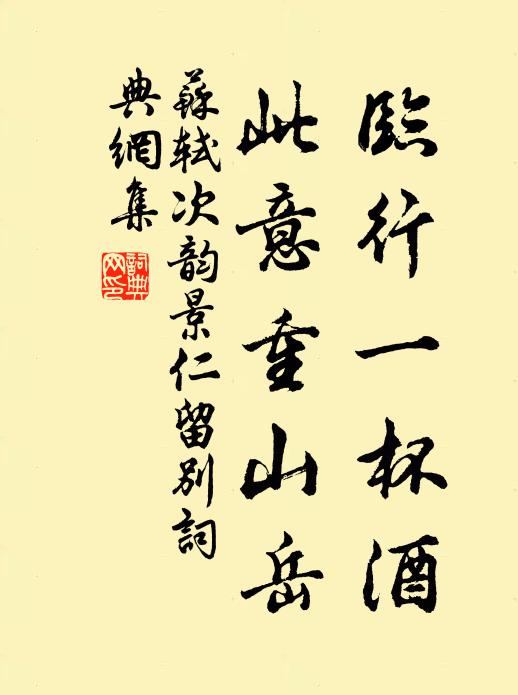 臨行一杯酒
此意重山岳
蘇軾次韵景仁留別詞
典網集
詞典网印